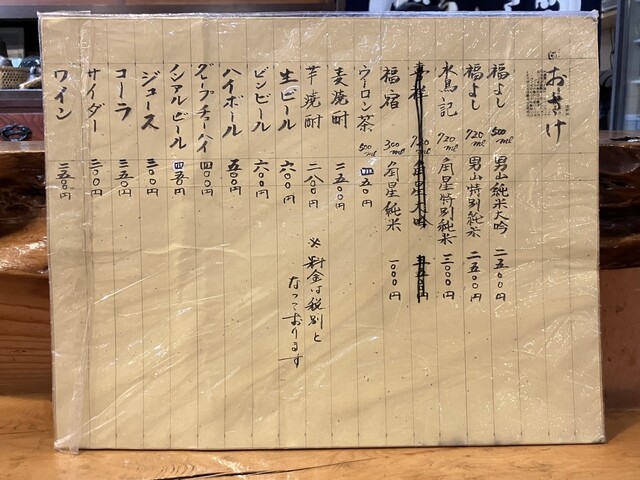 おさけ
福よし 500ml 男山純米大吟 二五〇〇円
福よし 720ml 男山特別純米 二五〇〇円
水鳥記 720ml 角星特別純米 三〇〇〇円
福宿 300ml 角星純米 一〇〇〇円
ウーロン茶 500ml 四五〇円
麦焼酎 二五〇〇円
芋焼酎 二八〇〇円
※料金は税別と
なっております
生ビール 六〇〇円
ビンビール 六〇〇円
ハイボール 五〇〇円
グレープチューハイ 四〇〇円
ノンアルビール 四五〇円
ジュース 三〇〇円
コーラ 三五〇円
サイダー 三〇〇円
ワイン 三五〇円